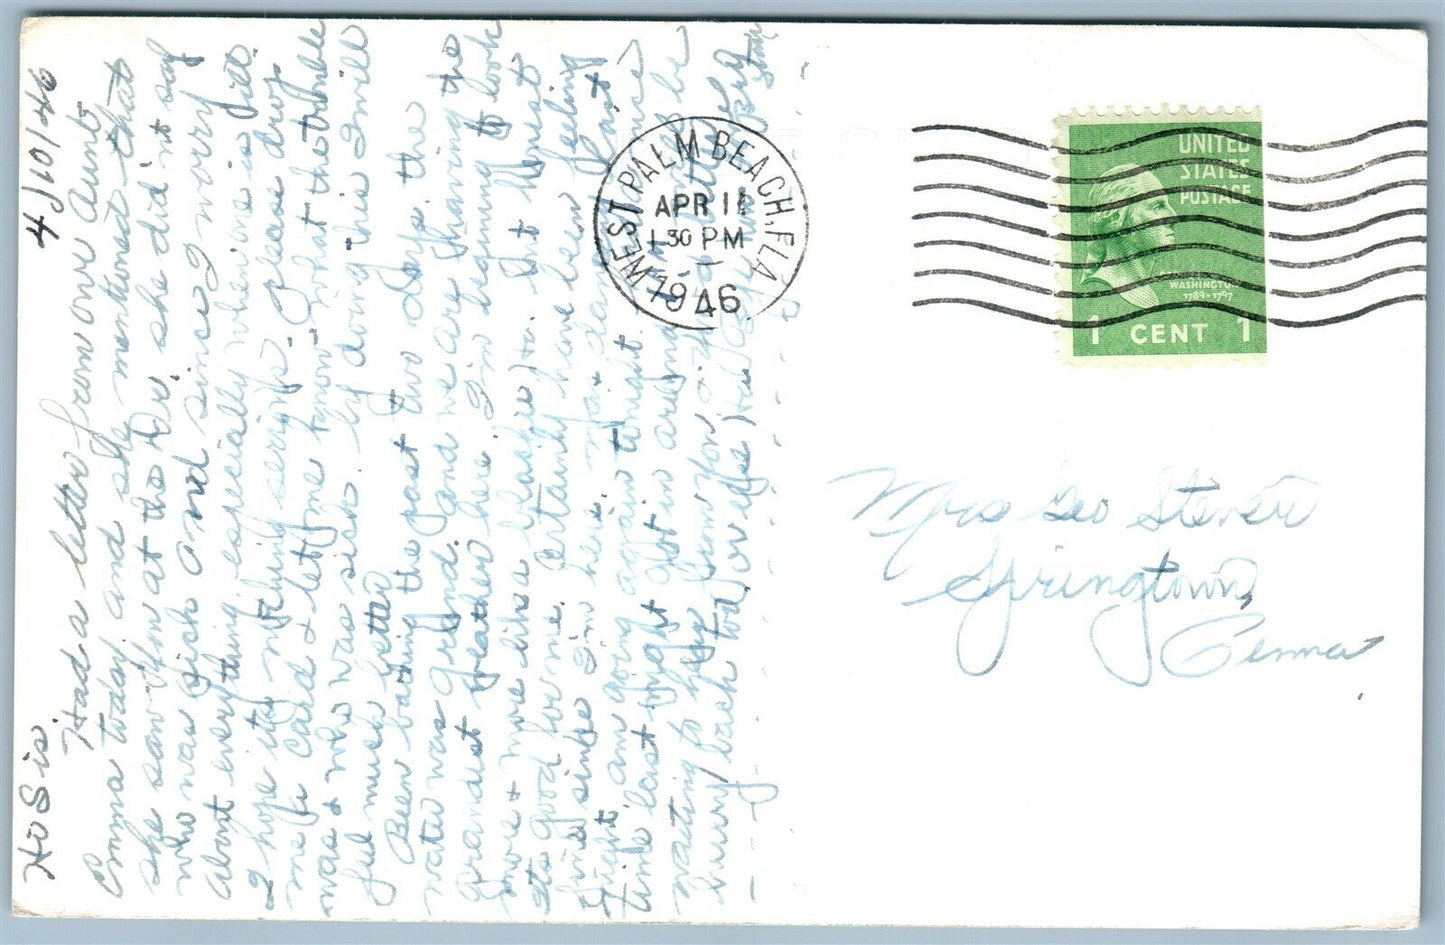 Hi Sis 4/10/46
Had a letter from our Aunt
Emma today and she mentioned that
she saw you at the Dr. she didn't say
who was sick and since I worry
about everything especially when one is sick
I hope its nothing serious - please drop
me a card & let me know what the trouble
was & who was sick. by doing this I will
feel much better
Been bathing the past two days. the
water was grand. and we are having the
grandest weather here. I'm beginning to look
more & more like a
its good for me. Certainly have been feeling
fine since I'm here. Had a dance last
night am going again tonight.
time last night got in
waiting to hear from you,
hurry back
WEST PALM BEACH, FLA
APR 11
1 30 PM
1946
UNITED
STATES
POSTAGE
WASHINGTON
1789-1797
1 CENT 1
Mrs Geo Steven
Springtown,
Penna